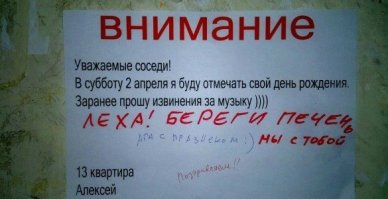 внимание
Уважаемые соседи!
В субботу 2 апреля я буду отмечать свой день рождения.
Заранее прошу извинения за музыку ))))
ЛЕХА! БЕРЕГИ ПЕЧЕНЬ
ДРА С ПРАЗНЕКОМ! :) МЫ С ТОБОЙ
13 квартира Поздравляем!!
Алексей